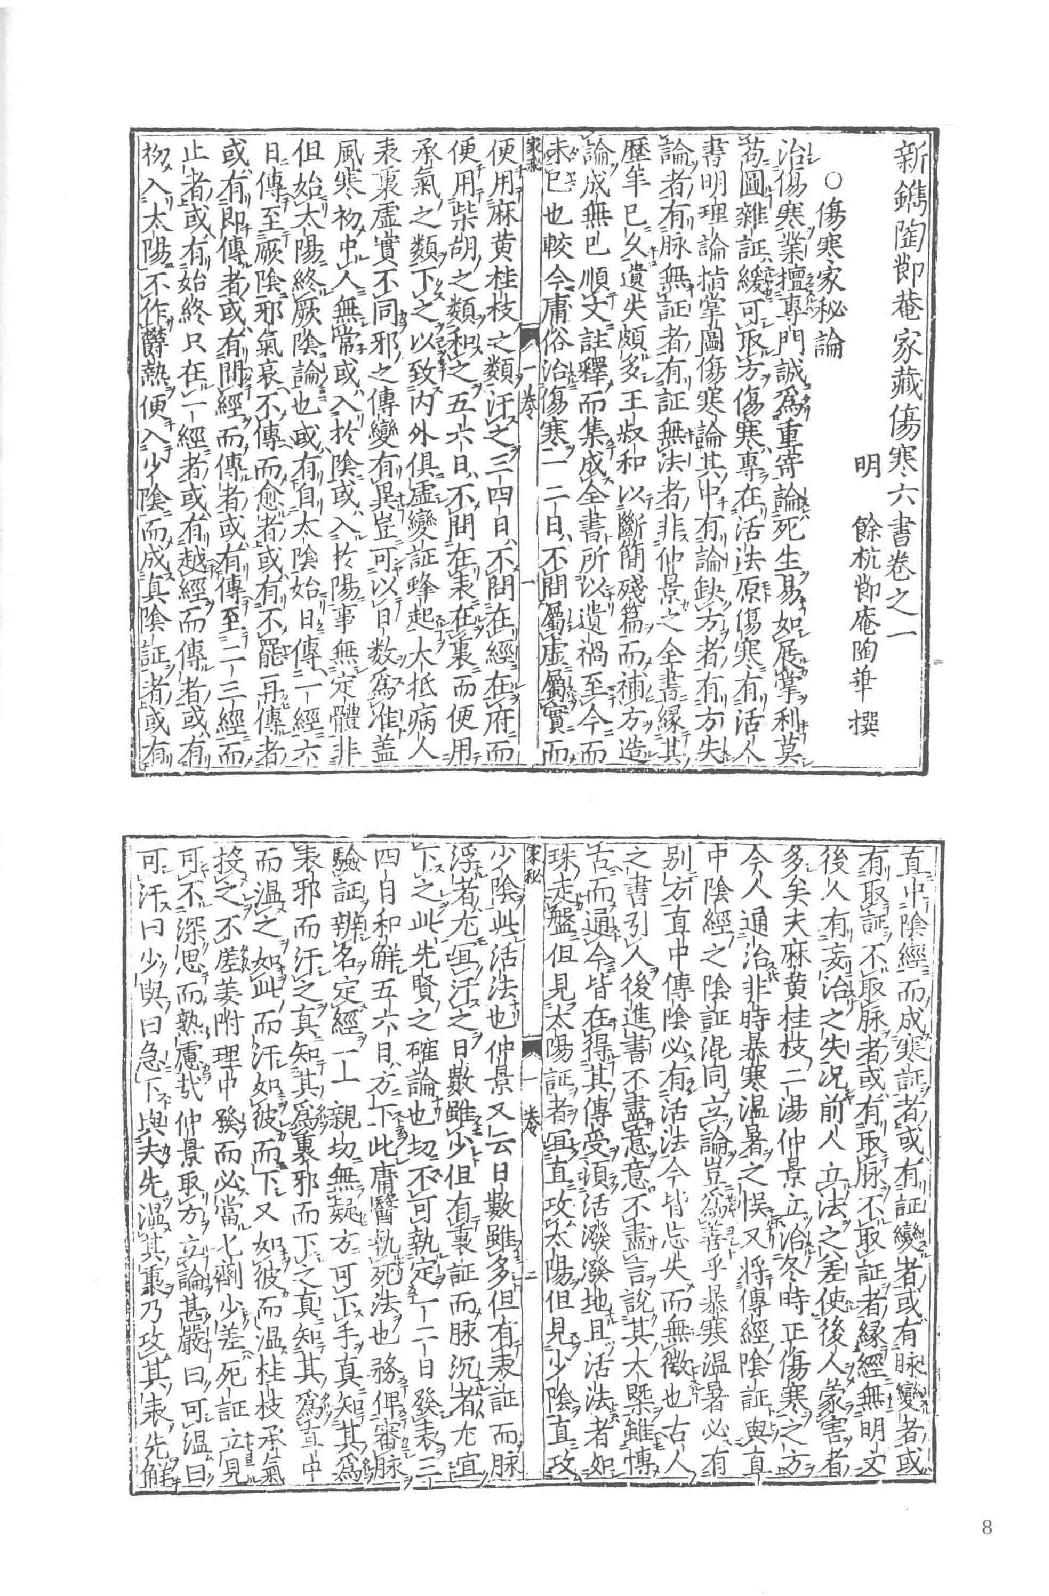 新鐫陶節菴家藏傷寒六書卷之一
明 餘杭節庵陶華 撰
○傷寒家秘論
治傷寒業擅專門誠爲重寄論死生易如展掌利莫
苟圖雜証緩可取方傷寒專在活法原傷寒有活人
書明理論指掌圖傷寒論其中有論缺方者有方失
論者有脉無証者有証無法者非仲景之全書緣其
歷年已久遺失頗多王叔和以斷簡殘篇而補方造
論成無已順文註釋而集成全書所以遺禍至今而
未已也較今庸俗治傷寒一二日不問屬虚屬實而
家秘
卷一
一
便用麻黄桂枝之類汗之三四日不問在經在府而
便用柴胡之類和之五六日不問在表在裏而便用
承氣之類下之以致内外俱虚變証蜂起大抵病人
表裏虚實不同邪之傳變有異豈可以日數爲准蓋
風寒初中人無常或入於陰或入於陽事無定體非
但始太陽終厥陰論也或有自太陰始日傳一經六
日傳至厥陰邪氣衰不傳而愈者或有不罷再傳者
或有即傳者或有間經而傳者或有傳至二三經而
止者或有始終只在一經者或有越經而傳者或有
初入太陽不作欝熱便入少陰而成真陰証者或有
直中陰經而成寒証者或有証變者或有脉變者或
有取証不取脉者或有取脉不取証者縁經無明文
後人有妄治之失况前人立法之差使後人蒙害者
多矣夫麻黄桂枝二湯仲景立治冬時正傷寒之方
今人通治非時暴寒温暑之悞又將傳經陰証與直
中陰經之陰証混同立論豈爲善乎暴寒温暑必有
别方直中傳陰必有活法今皆忘失而無徵也古人
之書引人後進書不盡意意不盡言說其大槩雖慱
古而通今皆在得其傳受須活潑潑地且活法者如
珠走盤但見太陽証者宜直攻太陽但見少陰直攻
家秘
卷一
二
少陰此活法也仲景又云日數雖多但有表証而脉
浮者尤宜汗之日數雖少但有裏証而脉沉者尤宜
下之此先賢之確論也切不可執定一二日發表三
四日和解五六日方下此庸醫執死法也務俾審脉
驗証辨名定經一一親切無疑方可下手真知其爲
表邪而汗之真知其爲裏邪而下之真知其爲直中
而温之如此而汗如彼而下又如彼而温桂枝承氣
投之不差姜附理中發而必當匕劑少差死証立見
可不深思而熟慮哉仲景取方立論甚嚴曰可温曰
可汗曰少與曰急下與夫先温其裏乃攻其表先解
8